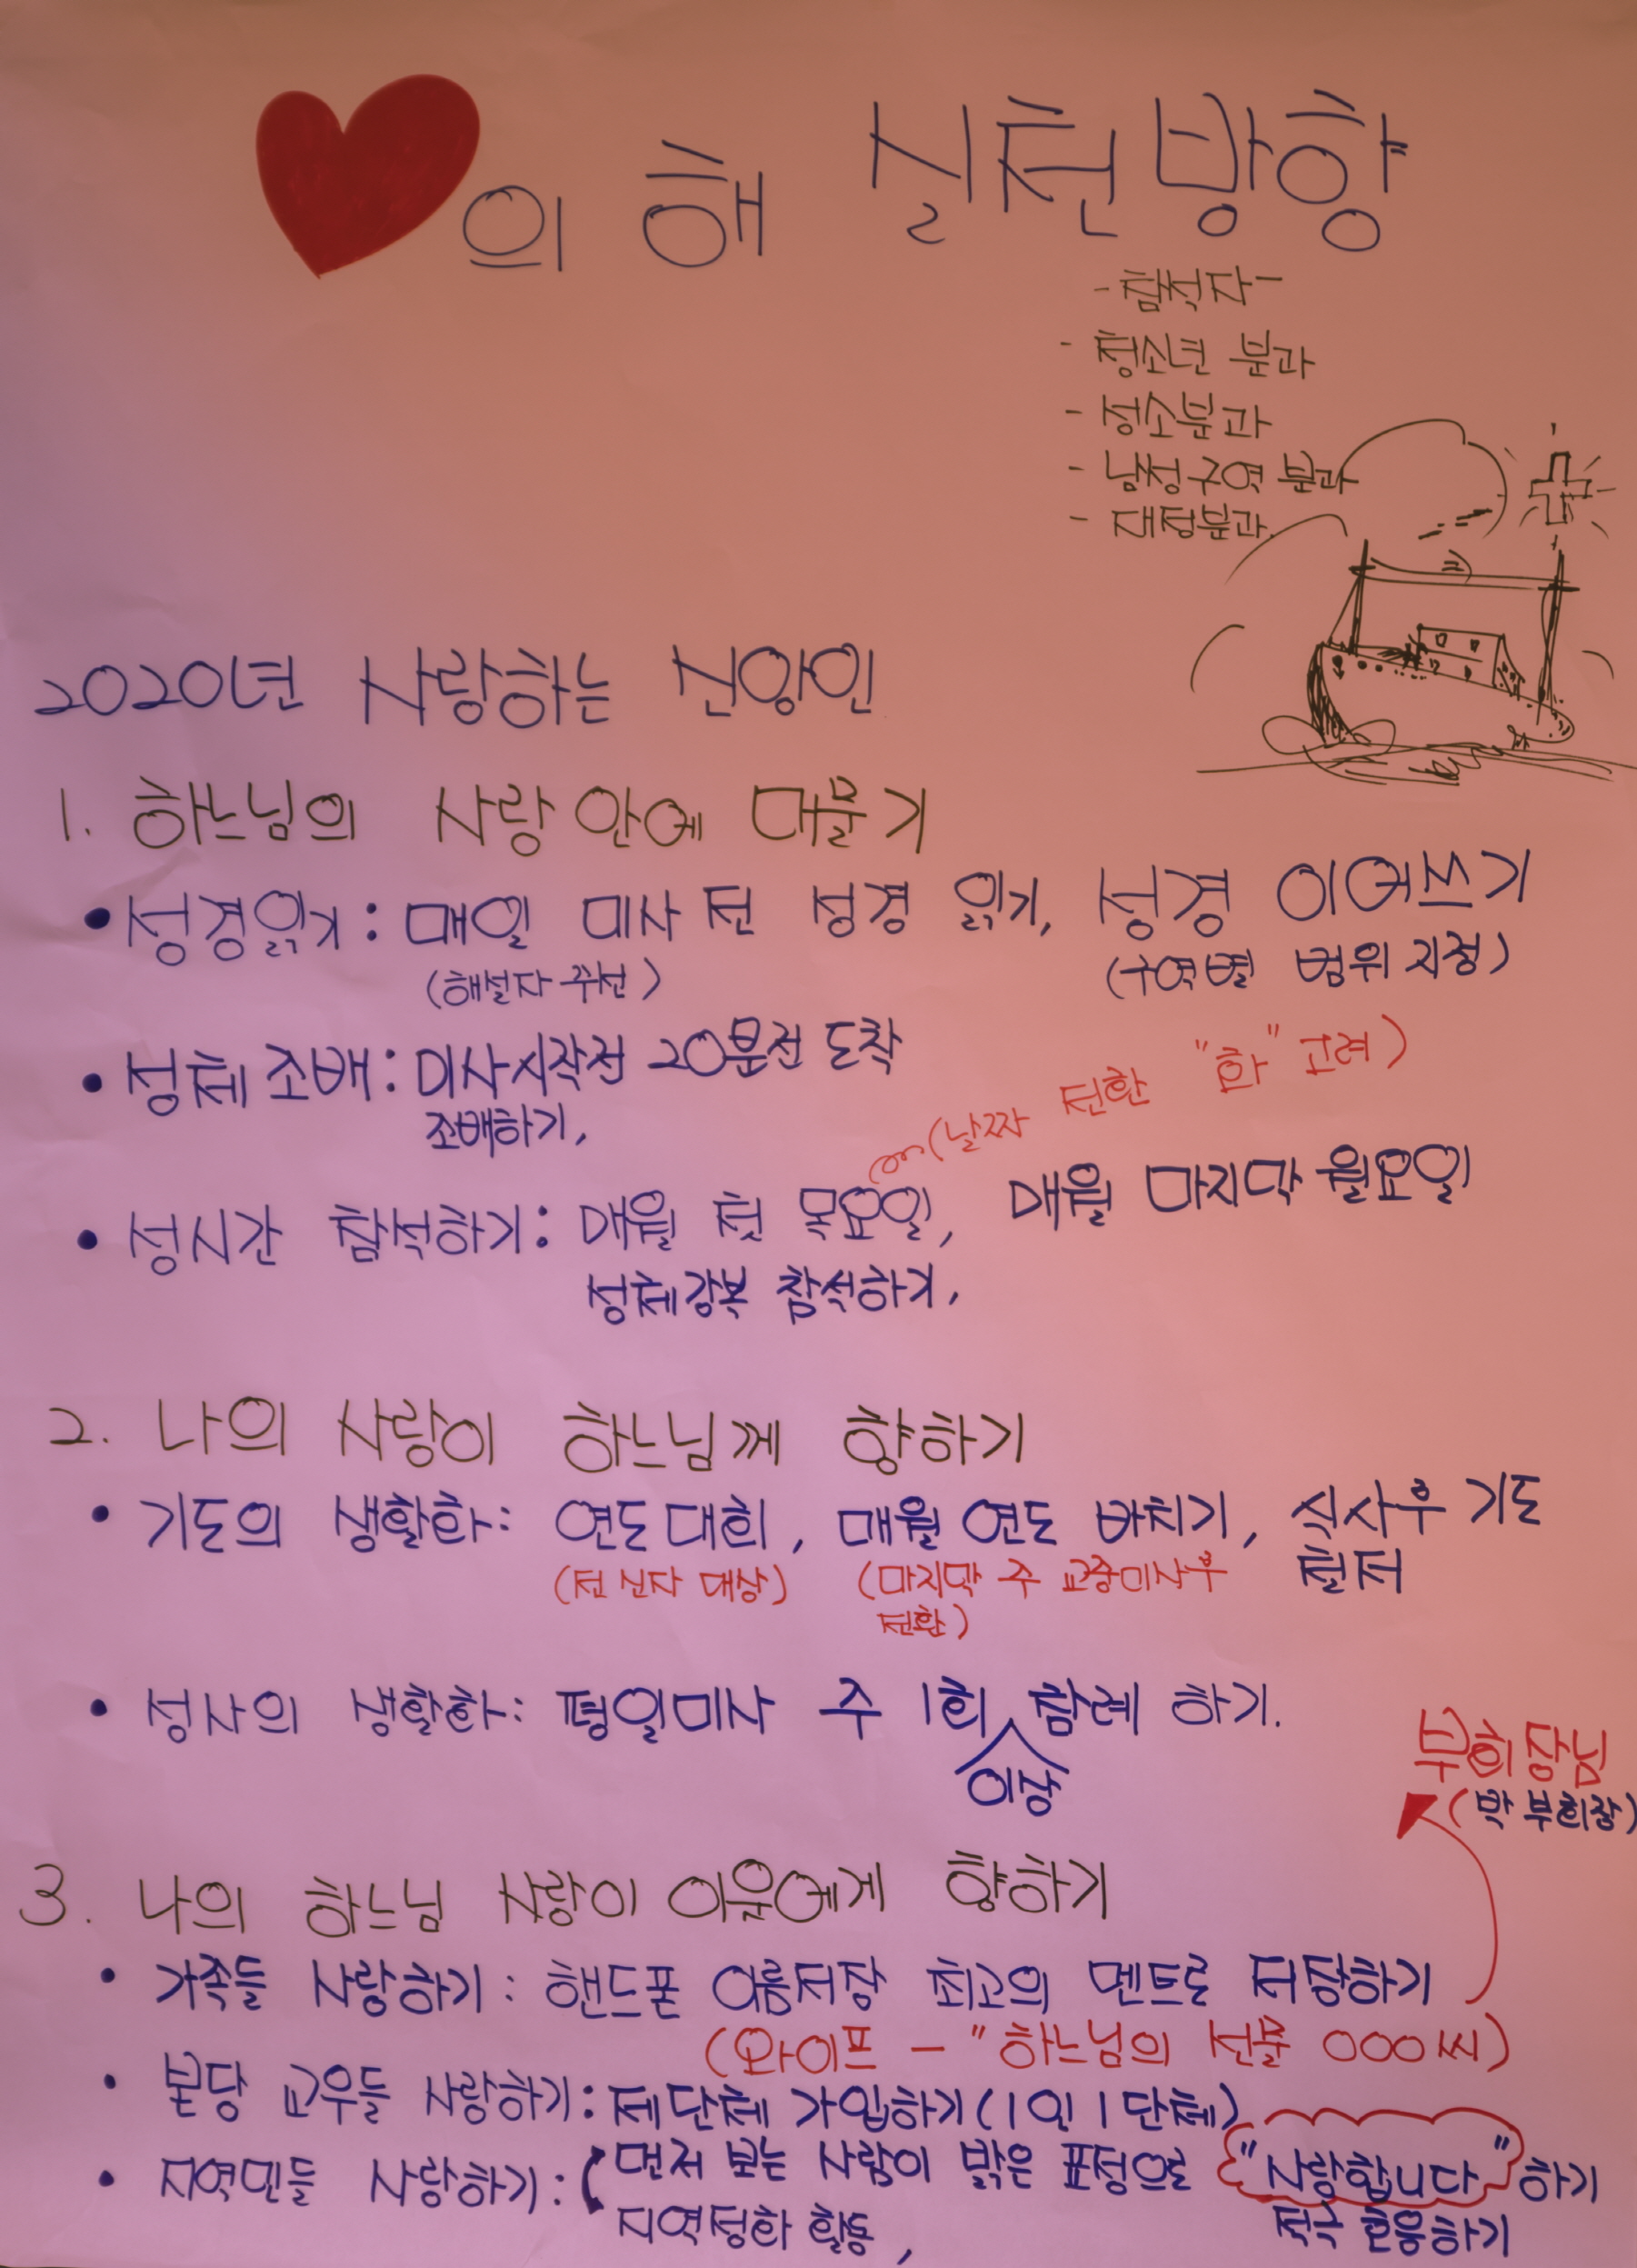 의 해 실천방향
- 참석자 -
- 청소년 분과
- 성소분과
- 남성구역 분과
- 재정분과
2020년 사랑하는 신앙인
1. 하느님의 사랑 안에 머물기
• 성경읽기 : 매일 미사 전 성경 읽기, 성경 이어쓰기
(해설자 주선) (구역별 범위 지정)
• 성체 조배 : 미사시작전 20분전 도착
조배하기,
(날짜 전환 "화" 고려)
• 성시간 참석하기 : 매월 첫 목요일, 매월 마지막 월요일
성체강복 참석하기,
2. 나의 사랑이 하느님께 향하기
• 기도의 생활화 : 연도대회, 매월 연도 바치기, 식사후 기도
(전 신자 대상) (마지막 주 교중미사후 철저
전환)
• 성사의 생활화 : 평일미사 주 1회 참례 하기.
이상
부회장님
(박 부회장)
3. 나의 하느님 사랑이 이웃에게 향하기
• 가족들 사랑하기 : 핸드폰 이름저장 최고의 멘트로 저장하기
(와이프 - "하느님의 선물 ○○○씨)
• 본당 교우들 사랑하기 : 제단체 가입하기 (1인 1단체)
• 지역민들 사랑하기 : 먼저 보는 사람이 밝은 표정으로 "사랑합니다" 하기
지역정화 활동, 적극 호응하기